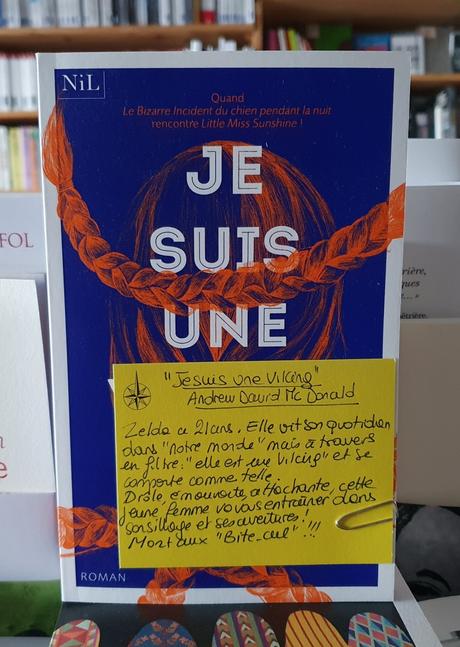 NiL
Quand
Le Bizarre Incident du chien pendant la nuit
rencontre Little Miss Sunshine !
JE
SUIS
UNE
"Je suis une Viking"
Andrew David Mc Donald
Zelda a 21 ans. Elle vit son quotidien
dans "notre monde" mais à travers
en filtre : "elle est une Viking" et se
comporte comme telle.
Drôle, émouvante, attachante, cette
jeune femme va vous entraîner dans
son sillage et ses aventures !
Mort aux "Bite-cul" !!!
ROMAN
FOL
rière,
ques
e... »
métrière,
n
e